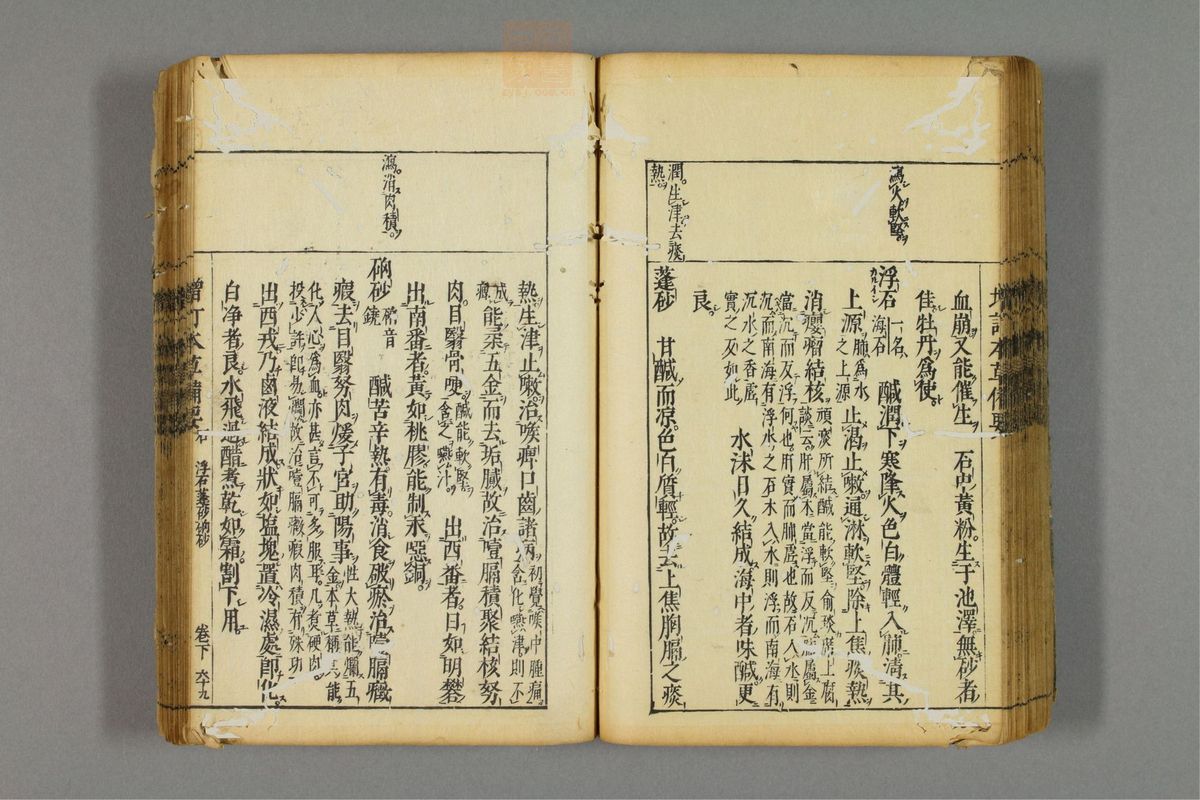 增訂本草備要
瀉火軟堅
潤生津去痰
熱
血崩又能催生 石中黃粉生于池澤無砂者
佳牡丹爲使
浮石 一名海石 カルイシ 鹹潤下寒降火色白體輕入肺清其
上源 肺爲水之上源 止渴止嗽通淋軟堅除上焦痰熱
消癭瘤結核 頑痰所結鹹能軟堅俞琰席上腐
談云肝屬木當浮而反沉肺屬金
當沉而反浮何也肝實而肺虛也故石入水則
沉而南海有浮水之石木入水則浮而南海有
沉水之香虛
實之反如此 水沫日久結成海中者味鹹更
良
蓬砂 甘鹹而凉色白質輕故去上焦胸膈之痰
瀉消肉積
熱生津止嗽治喉痺口齒諸病 初覺喉中腫痛
含化嚥津則不
成癰 能柔五金而去垢膩故治噎膈積聚結核努
肉目翳骨哽 鹹能軟堅含之嚥汁 出西番者白如明礬
出南番者黃如桃膠能制汞啞銅
硇砂 硇音鐃 鹹苦辛熱有毒消食破瘀治噎膈癥
瘕去目翳努肉煖子宮助陽事 性大熱能爛五
金本草稱其能
化人心爲血亦甚言不可多服耳凡煮硬肉
投少許即易爛故治噎膈癥瘕肉積有殊功
出西戎乃鹵液結成狀如塩塊置冷濕處即化
白净者良水飛過醋煮乾如霜割下用
增訂本草備要 浮石蓬砂硇砂 卷下 六十九